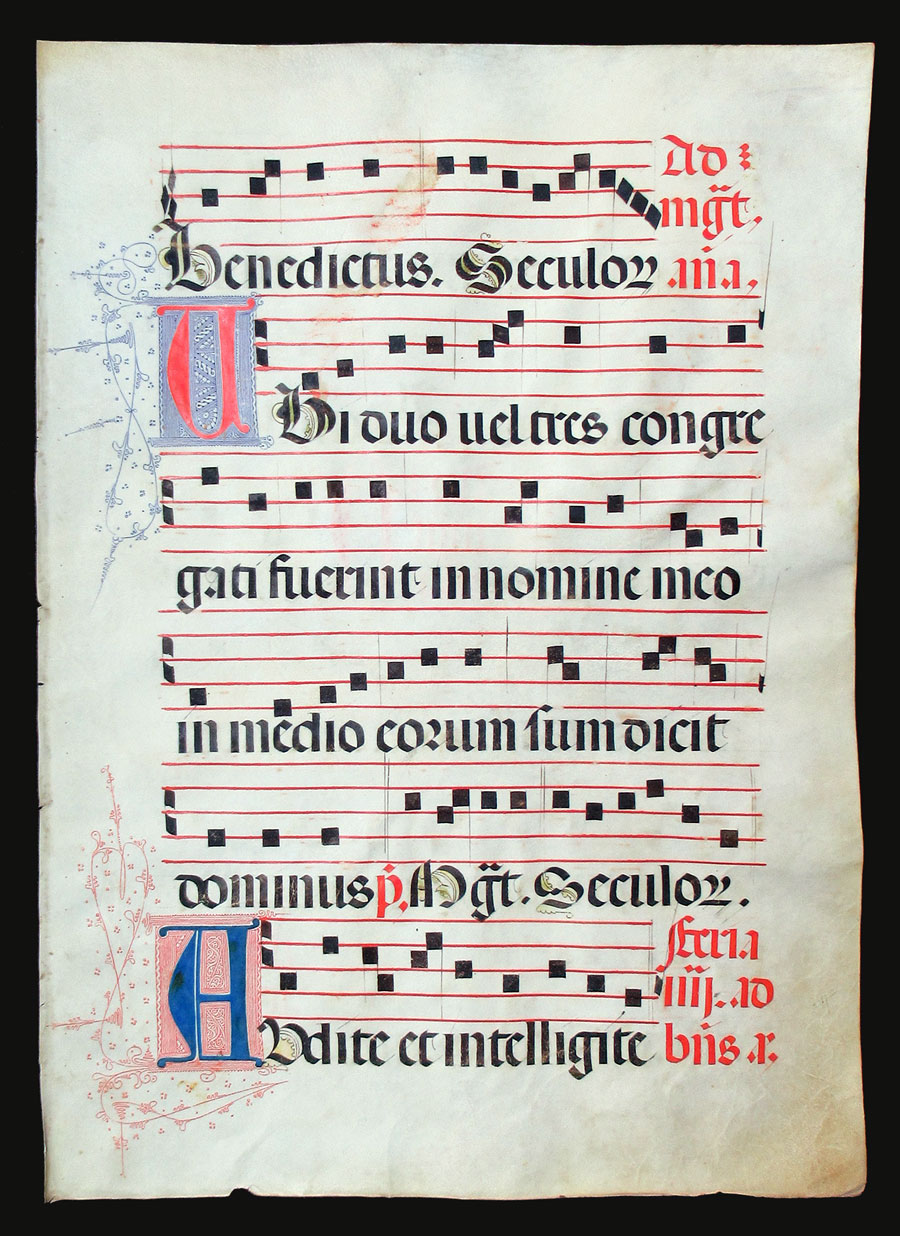 Ad
mg̃t,
Benedictus. Seculoꝝ .an̄a.
UBi duo uel tres congre
gati fuerint in nomine meo
in medio eorum sum dicit
dominus p̄. Mg̃t. Seculoꝝ.
feria
iiij. ad
AUdite et intelligite bn̄s .a.